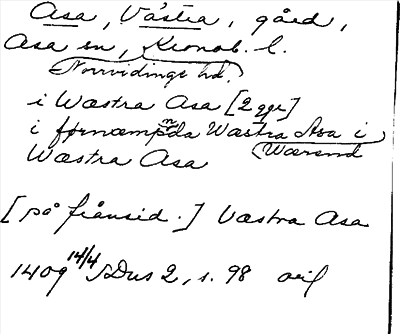 Asa, Västra, gård,
Asa sn, Kronob. l.
Norrvidinge hd.
i Wæstra Asa [2 ggr]
i førnæmpnda Wæstra Asa i
Wærend
Wæstra Asa
[på frånsid.] Væstra Asa
1409 14/4 SDns 2, s. 98